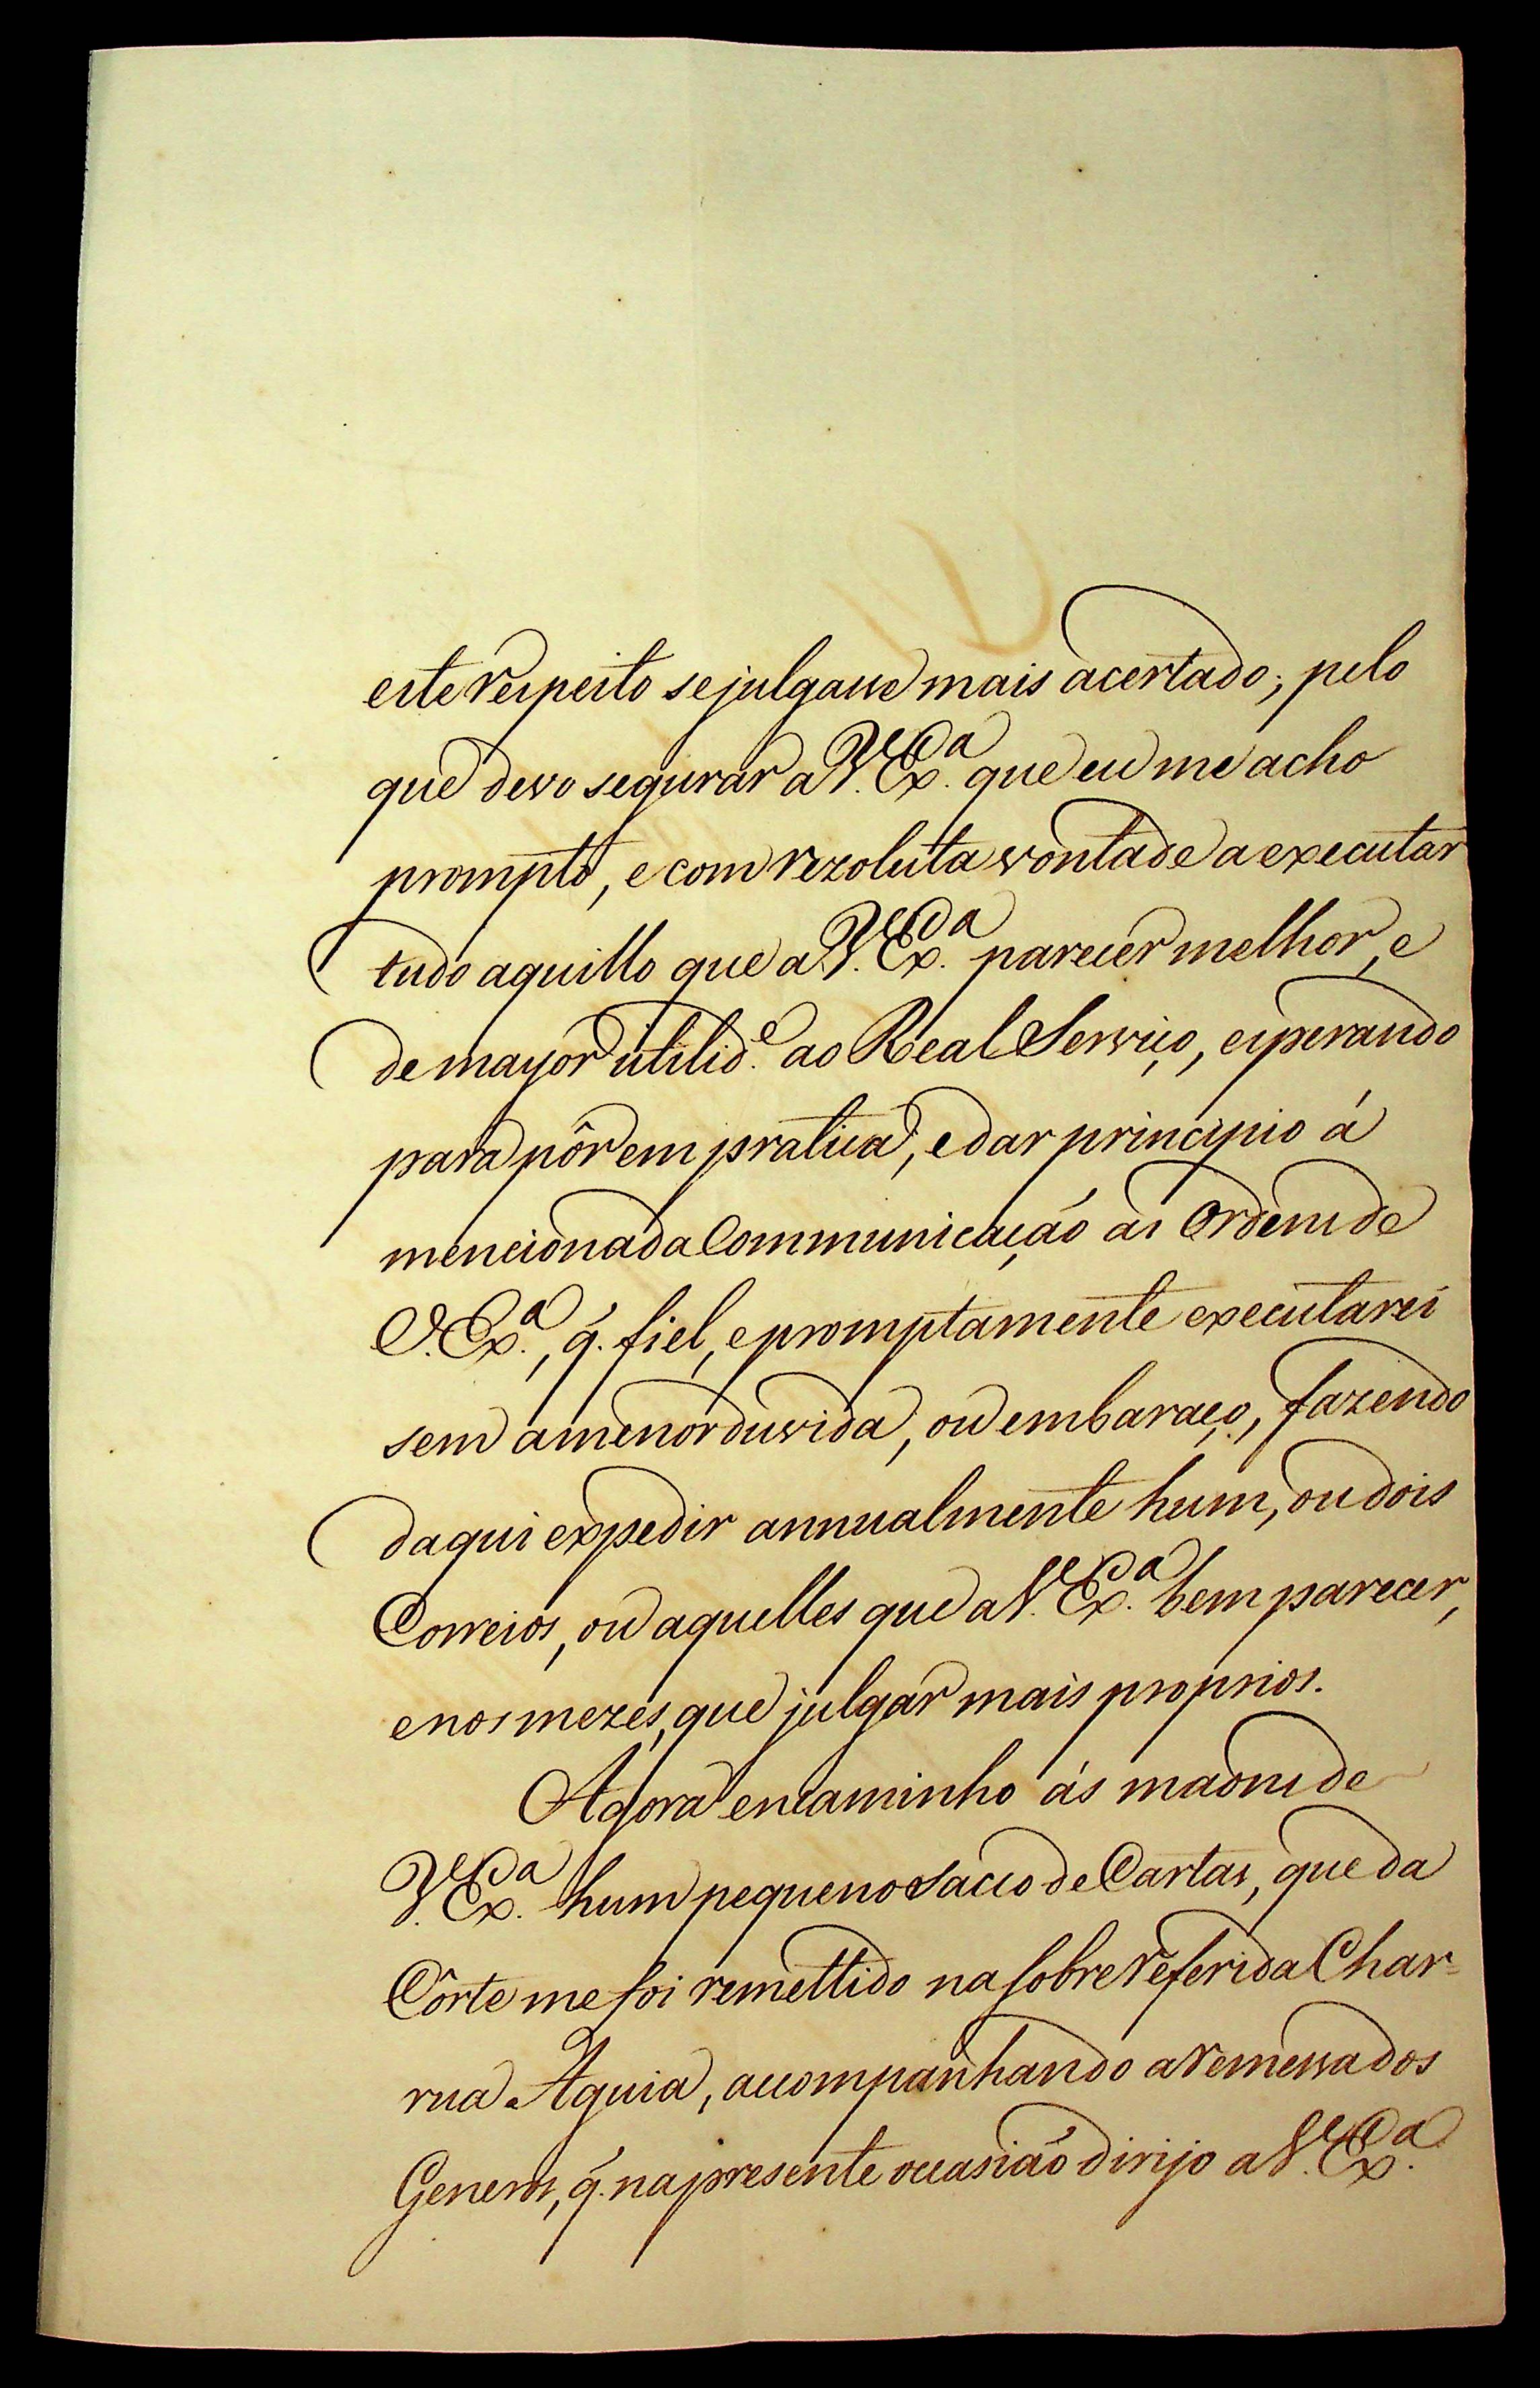 este respeito se julgasse mais acertado; pelo
que devo segurar a V. Ex.ª que eu me acho
prompto, e com rezoluta vontade a executar
tudo aquillo que a V. Ex.ª parecer melhor, e
de mayor utilid.e ao Real Serviço, esperando
para pôr em pratica, e dar principio á
mencionada Communicação as Ordens de
V. Ex.ª, q̃. fiel, e promptamente executarei
sem a menor duvida, ou embaraço, fazendo
daqui expedir annualmente hum, ou dois
Correios, ou aquelles que a V. Ex.ª bem parecer,
e nos mezes, que julgar mais proprios.
Agora encaminho ás maons de
V. Ex.ª hum pequeno Sacco de Cartas, que da
Côrte me foi remettido na sobre referida Char=
rua Aguia, accompanhando a remessa dos
Generos, q̃. na presente occasião dirijo a V. Ex.ª